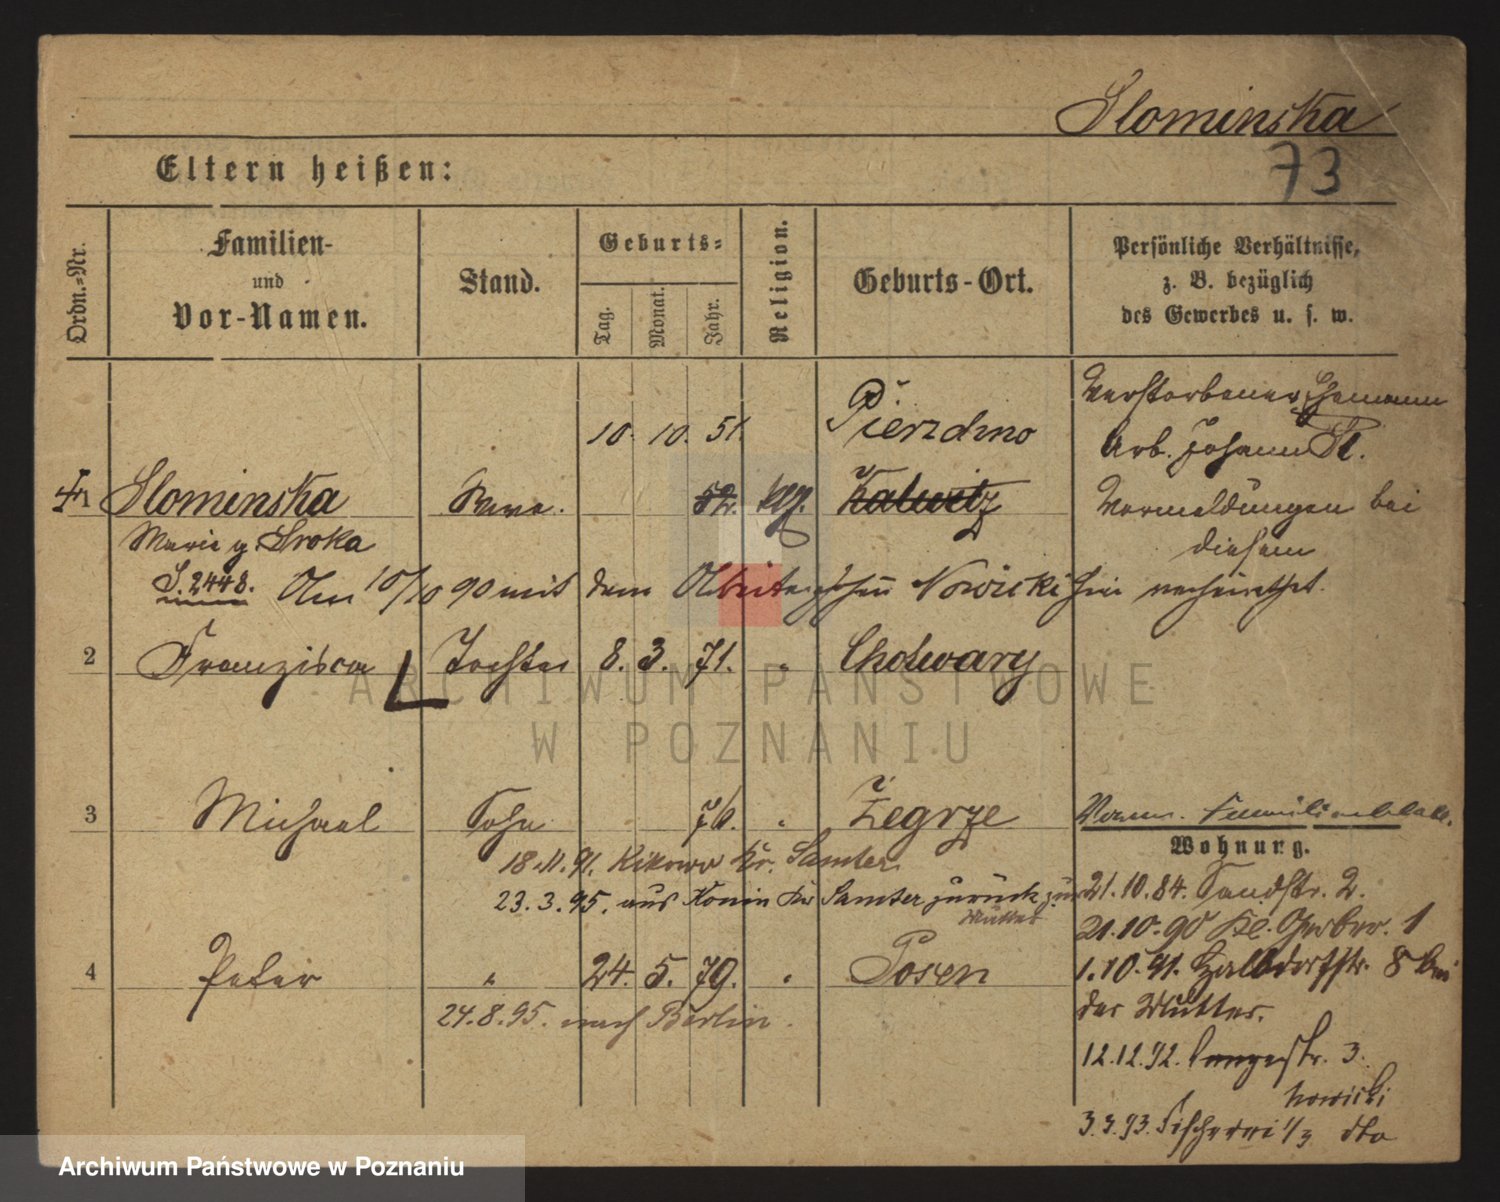 Slominska
73
Eltern heißen:
Ordn.-Nr.
Familien-
und
Vor-Namen.
Stand.
Geburts-
Tag.
Monat.
Jahr.
Religion.
Geburts-Ort.
Persönliche Verhältnisse,
z. B. bezüglich
des Gewerbes u. s. w.
10. 10. 51. Pierzchno
Verstorbener Ehemann
Arb. Johann Sl.
1 Slominska Wwe. 52. kth. Kalwetz
Vermeldungen bei
diesem
Marie g. Sroka
S. 2448. Am 10/10 90 mit dem Arbeiter Nowicki hier verheirathet.
2 Franziska Tochter 8. 3. 71. " Cholwary
3 Michael Sohn 76. " Żegrze
Familienblatt.
Wohnung.
18.11.91. Kikowo Kr. Samter
23.3.95. aus Konin Kr Samter zurück zur
Mutter
21.10.84. Sandstr. 2.
21.10.90 Kl. Gerberstr. 1
4 Peter " 24. 5. 79. " Posen
1.10.91. Halbdorfstr. 8 bei
der Mutter.
24.8.95. nach Berlin.
12.12.92. Langestr. 3.
Nowicki
3.3.93. Fischerei 1/3 dto
ARCHIWUM PAŃSTWOWE
W POZNANIU
Archiwum Państwowe w Poznaniu